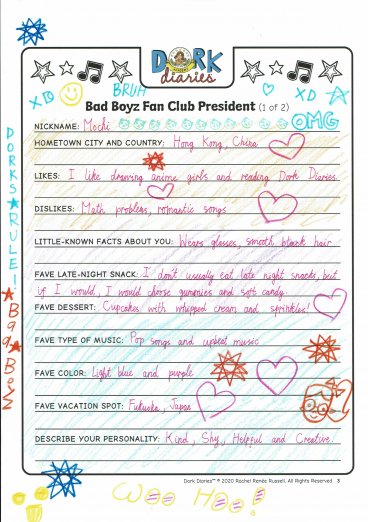 DORK
diaries
XD
BRUH
XD
Bad Boyz Fan Club President (1 of 2)
OMG
NICKNAME: Mochi
HOMETOWN CITY AND COUNTRY: Hong Kong, China
LIKES: I like drawing anime girls and reading Dork Diaries.
DISLIKES: Math problems, romantic songs
LITTLE-KNOWN FACTS ABOUT YOU: Wears glasses, smooth blank hair
FAVE LATE-NIGHT SNACK: I don't usually eat late night snacks, but
if I would, I would choose gummies and soft candy.
FAVE DESSERT: Cupcakes with whipped cream and sprinkles!
FAVE TYPE OF MUSIC: Pop songs and upbeat music
FAVE COLOR: Light blue and purple
FAVE VACATION SPOT: Fukuoka, Japan
DESCRIBE YOUR PERSONALITY: Kind, Shy, Helpful and Creative.
DORKS RULE!
Bad Boyz
Dork Diaries™ © 2020 Rachel Renée Russell. All Rights Reserved 3
Woo Hoo!